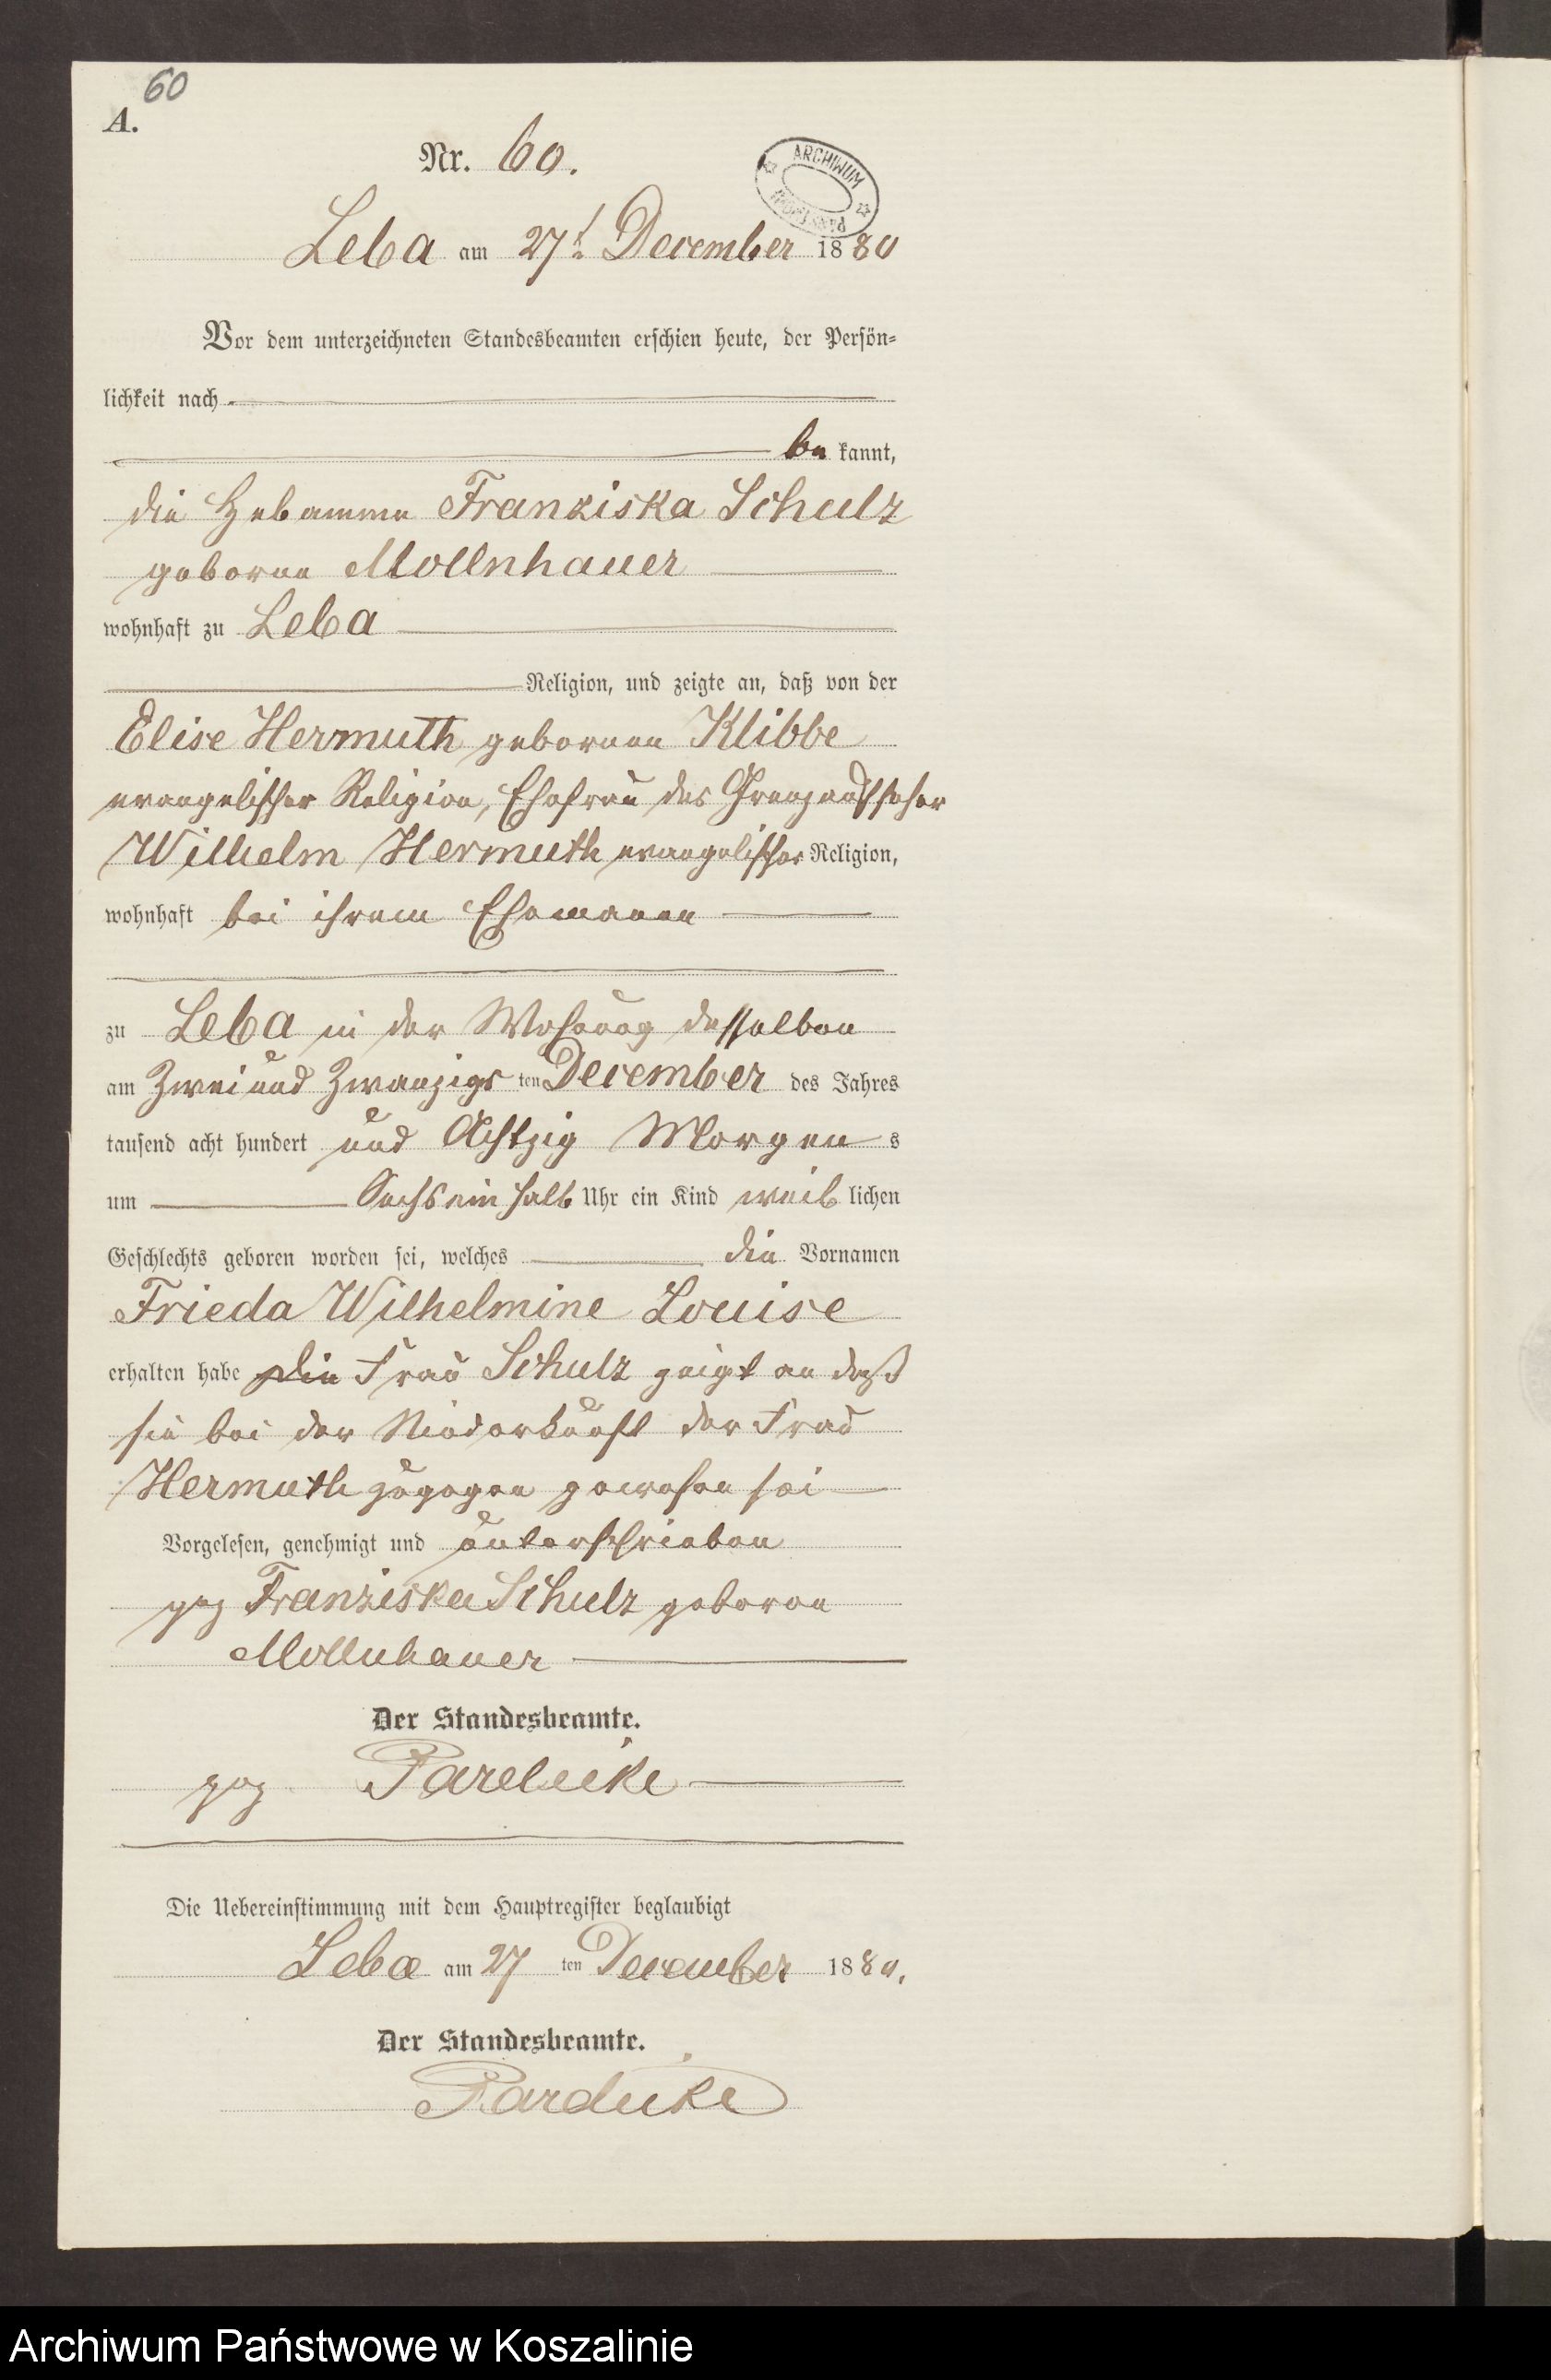 60
A.
Nr. 60.
ARCHIWUM
Leba am 27t December 1880
Vor dem unterzeichneten Standesbeamten erschien heute, der Persön-
lichkeit nach
be kannt,
die Hebamme Franziska Schulz
geborne Mollnhauer
wohnhaft zu Leba
Religion, und zeigte an, daß von der
Elise Hermuth gebornen Klibbe
evangelischer Religion, Ehefrau des Grenzaufseher
Wilhelm Hermuth evangelischer Religion,
wohnhaft bei ihrem Ehemanne
zu Leba in der Wohnung desselben
am Zwei und Zwanzigs ten December des Jahres
tausend acht hundert und Achtzig Morgen s
um Sechs ein halb Uhr ein Kind weib lichen
Geschlechts geboren worden sei, welches die Vornamen
Frieda Wilhelmine Louise
erhalten habe Die Frau Schulz zeigt an daß
sie bei der Niederkunft der Frau
Hermuth zugegen gewesen sei
Vorgelesen, genehmigt und unterschrieben
gez Franziska Schulz geboren
Mollnhauer
Der Standesbeamte.
gez
Die Uebereinstimmung mit dem Hauptregister beglaubigt
Leba am 27 ten December 1880.
Der Standesbeamte.
Archiwum Państwowe w Koszalinie